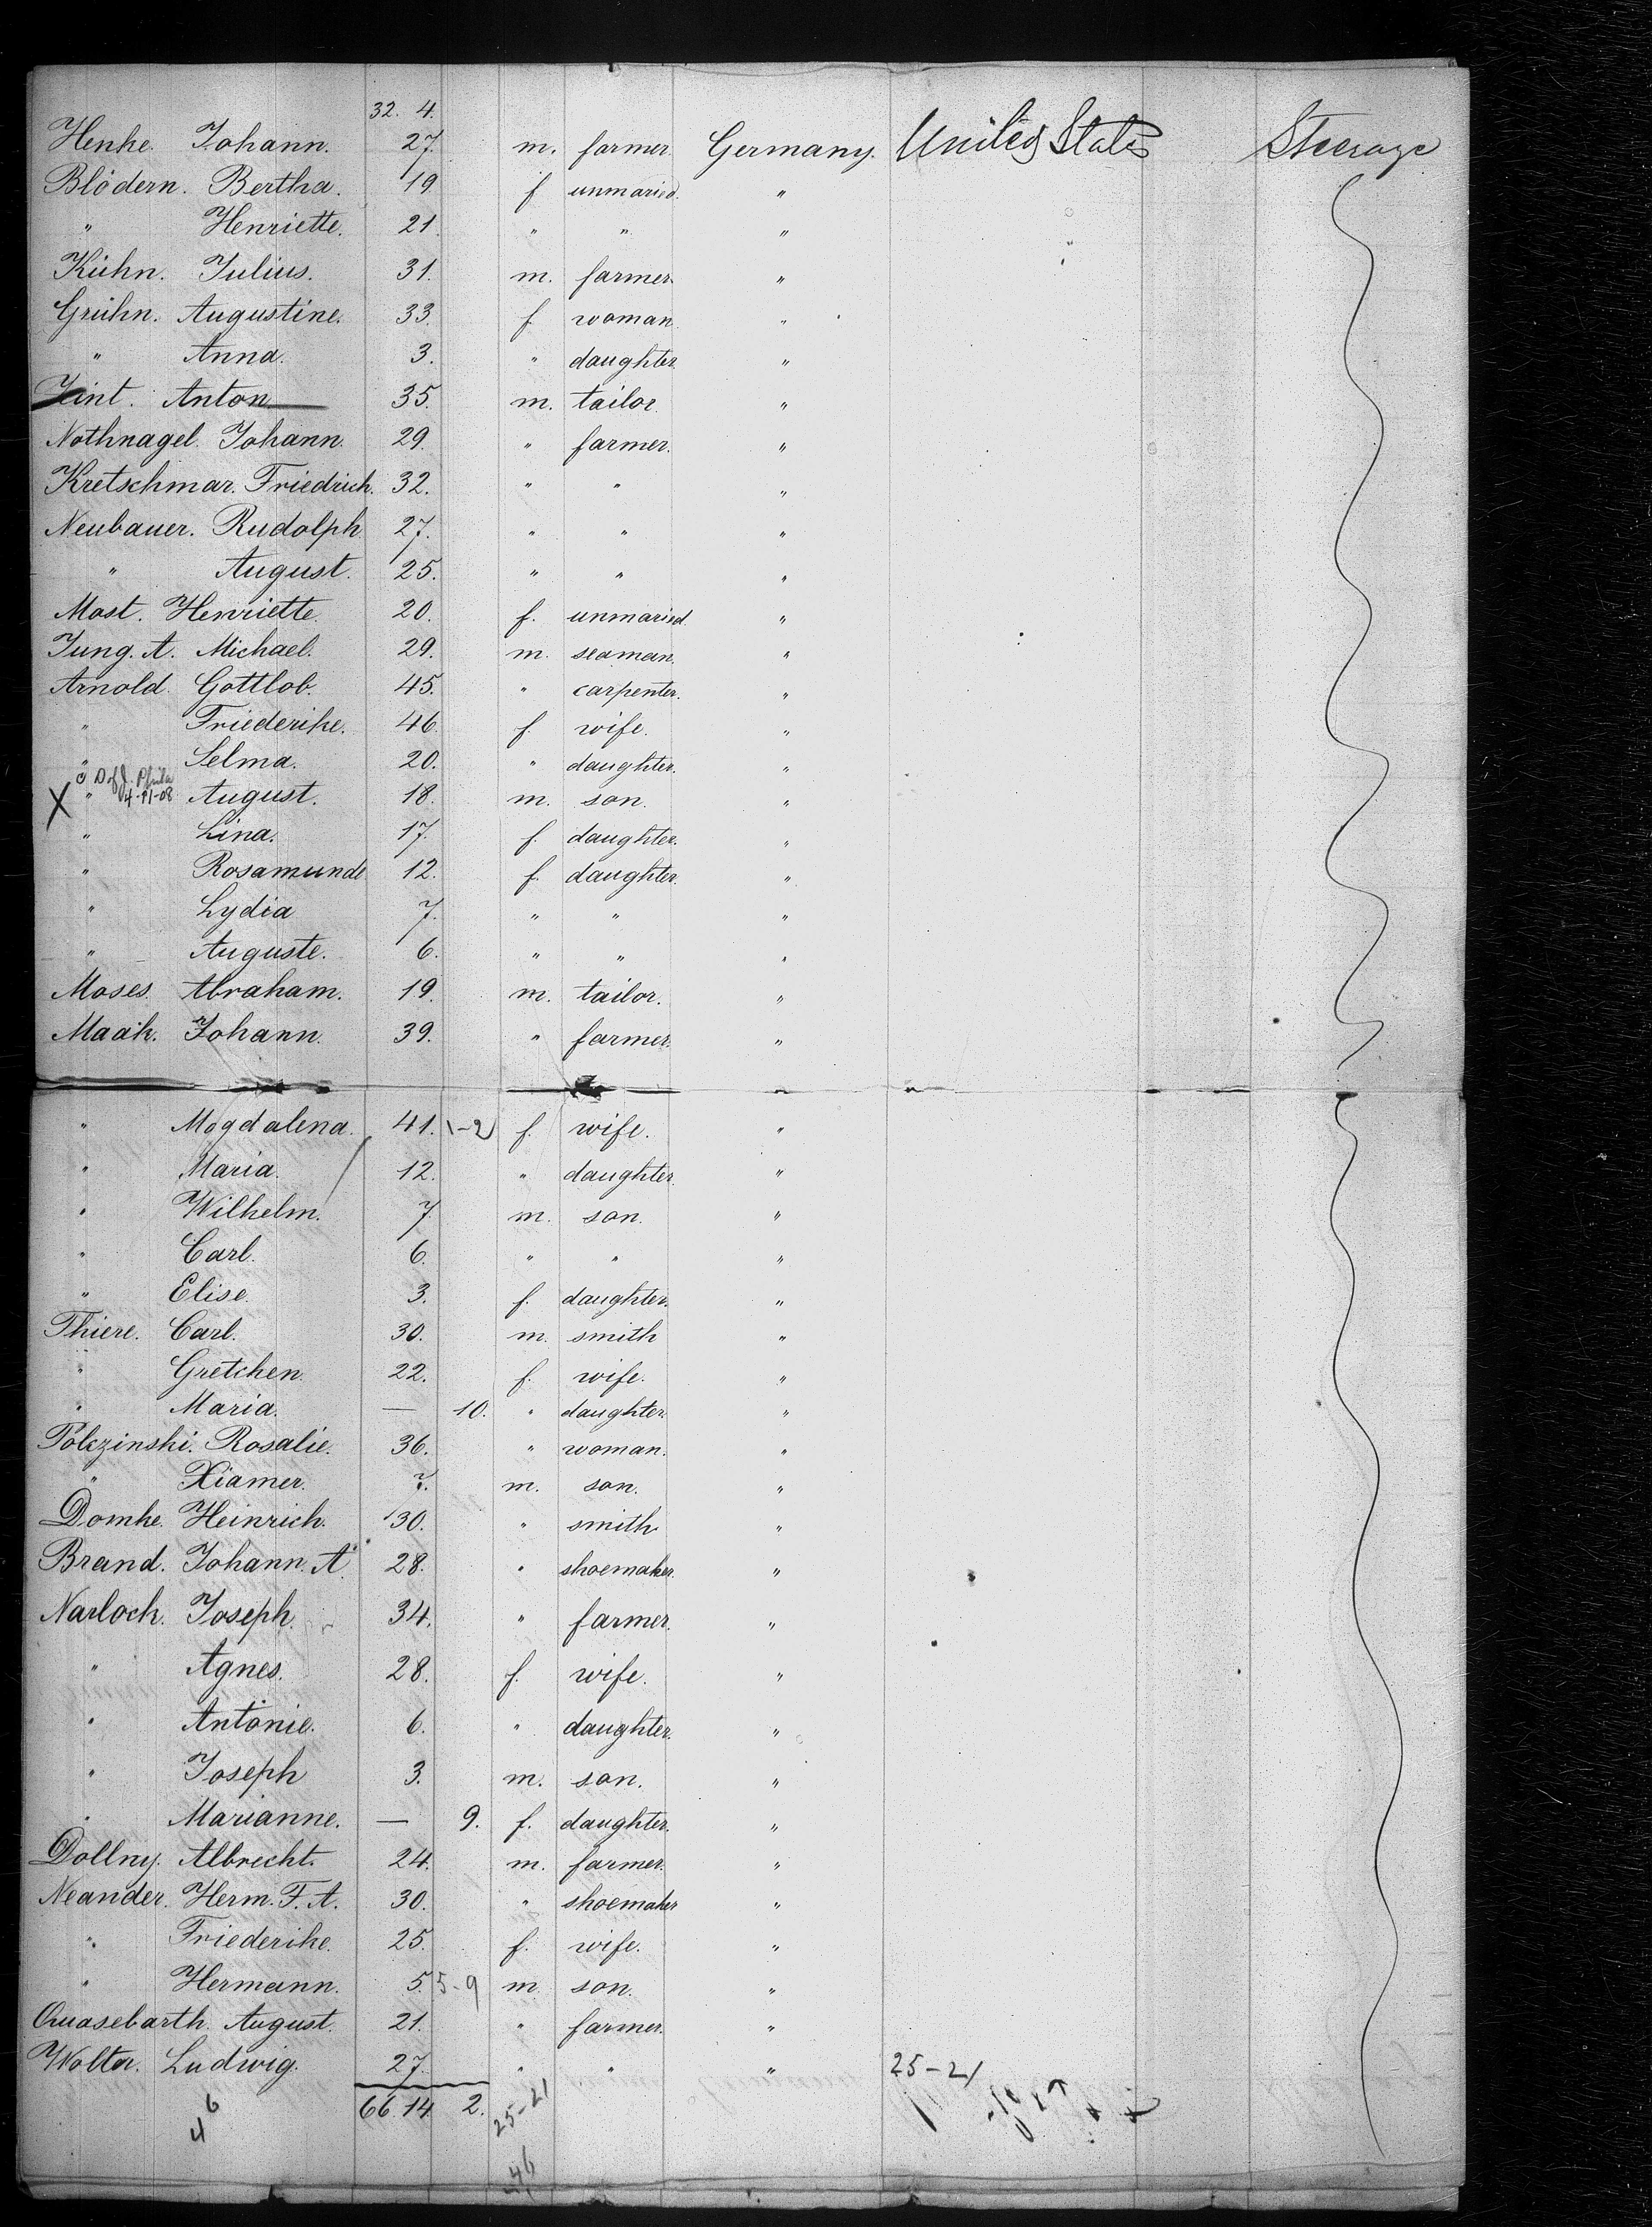 32. 4.
Henke. Johann. 27. m. farmer. Germany. United States Steerage
Blödern. Bertha. 19. f unmaried. "
" Henriette. 21. " " "
Kühn. Julius. 31. m. farmer. "
Grühn. Augustine. 33. f woman. "
" Anna. 3. " daughter. "
Anton 35. m. tailor. "
Nothnagel. Johann. 29. " farmer. "
Kretschmar. Friedrich. 32. " " "
Neubauer. Rudolph. 27. " " "
" August. 25. " " "
Most. Henriette. 20. f. unmaried. "
Jung. A. Michael. 29. m. seaman. "
Arnold. Gottlob. 45. " carpenter. "
" Friederike. 46. f. wife. "
" Selma. 20. " daughter. "
X 4-11-08 " August. 18. m. son. "
" Lina. 17. f. daughter. "
" Rosamunde 12. f. daughter. "
" Lydia 7. " " "
" Auguste. 6. " " "
Moses. Abraham. 19. m. tailor. "
Maack. Johann. 39. " farmer. "
" Magdalena. 41. 1-2 f. wife. "
" Maria. 12. " daughter. "
" Wilhelm. 7. m. son. "
" Carl. 6. " " "
" Elise. 3. f. daughter. "
Thiere. Carl. 30. m. smith "
" Gretchen. 22. f. wife. "
" Maria. — 10. " daughter. "
Polczinski. Rosalie. 36. " woman. "
" Xiamer. 7. m. son. "
Domke. Heinrich. 30. " smith "
Brand. Johann. A. 28. " shoemaker. "
Narloch. Joseph. 34. " farmer. "
" Agnes. 28. f. wife. "
" Antonie. 6. " daughter. "
" Joseph 3. m. son. "
" Marianne. — 9. f. daughter. "
Dollny. Albrecht. 24. m. farmer. "
Neander. Herm. F. A. 30. " shoemaker "
" Friederike. 25. f. wife. "
" Hermann. 5. 5-9 m son. "
Quasebarth. August. 21. " farmer. "
Wolter. Ludwig. 27. " " " 25-21
66.14 2. 25-21
46
46